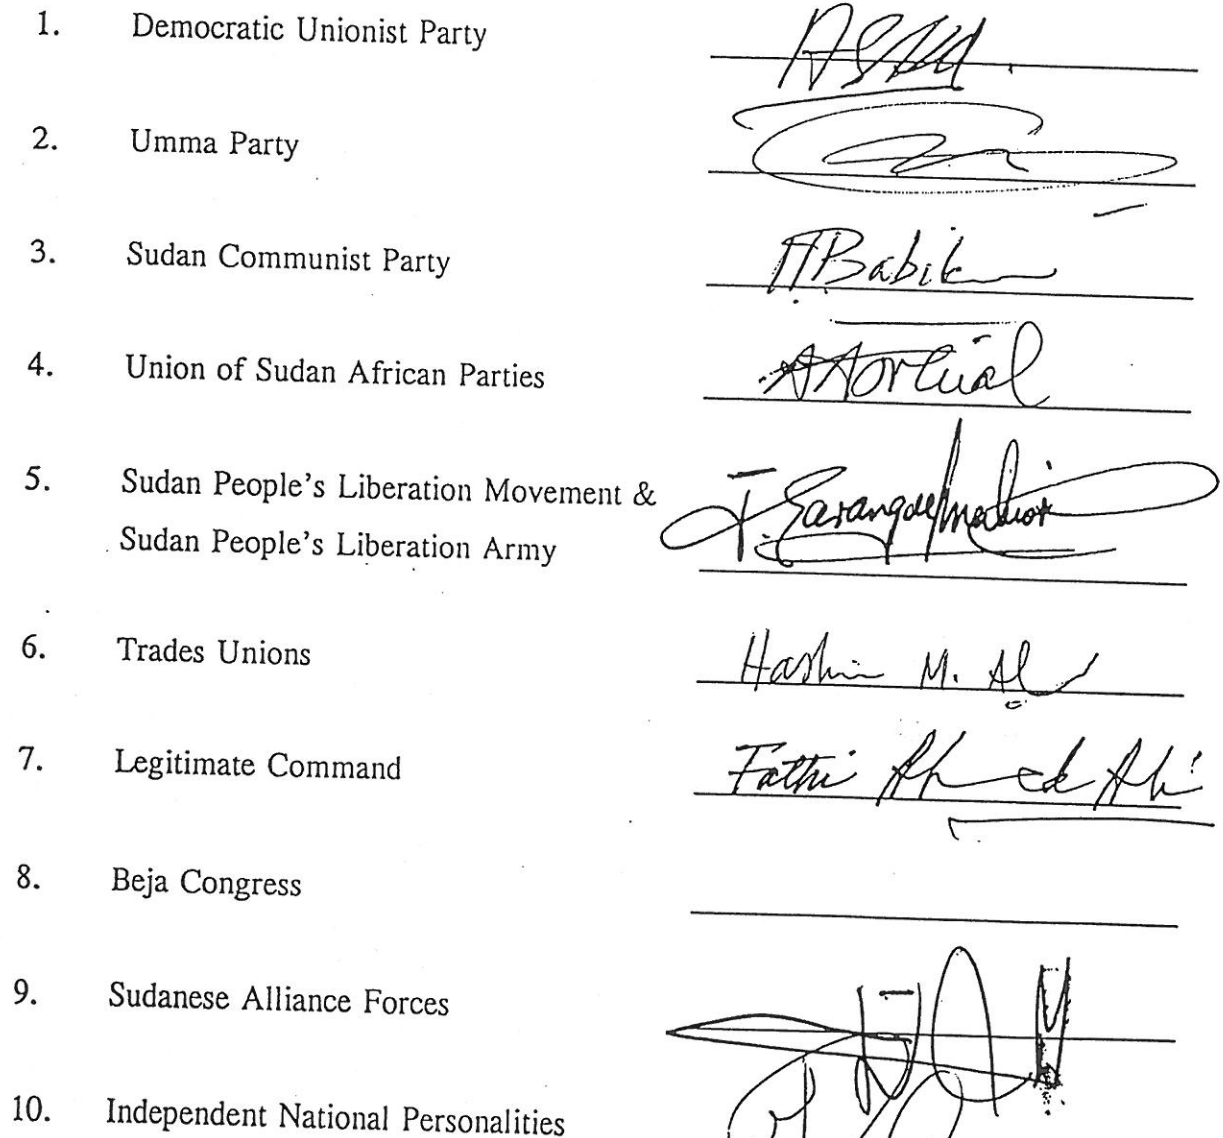 1. Democratic Unionist Party
2. Umma Party
3. Sudan Communist Party
Babik
4. Union of Sudan African Parties
5. Sudan People's Liberation Movement &
Sudan People's Liberation Army
Garang
6. Trades Unions
Hashim M. Al
7. Legitimate Command
Fathi Ahmed Ali
8. Beja Congress
9. Sudanese Alliance Forces
10. Independent National Personalities